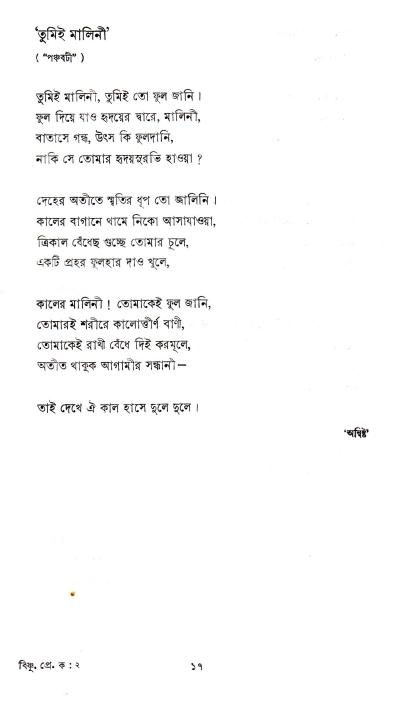 ‘তুমিই মালিনী’
( “পঞ্চবটী” )
তুমিই মালিনী, তুমিই তো ফুল জানি।
ফুল দিয়ে যাও হৃদয়ের দ্বারে, মালিনী,
বাতাসে গন্ধ, উৎস কি ফুলদানি,
নাকি সে তোমার হৃদয়সুরভি হাওয়া ?
দেহের অতীতে স্মৃতির ধূপ তো জালিনি।
কালের বাগানে থামে নিকো আসাযাওয়া,
ত্রিকাল বেঁধেছ গুচ্ছে তোমার চুলে,
একটি প্রহর ফুলহার দাও খুলে,
কালের মালিনী ! তোমাকেই ফুল জানি,
তোমারই শরীরে কালোত্তীর্ণ বাণী,
তোমাকেই রাখী বেঁধে দিই করমূলে,
অতীত থাকুক আগামীর সন্ধানী—
তাই দেখে ঐ কাল হাসে দুলে দুলে।
‘অন্বিষ্ট’
বিষ্ণু. প্রে. ক : ২
১৭